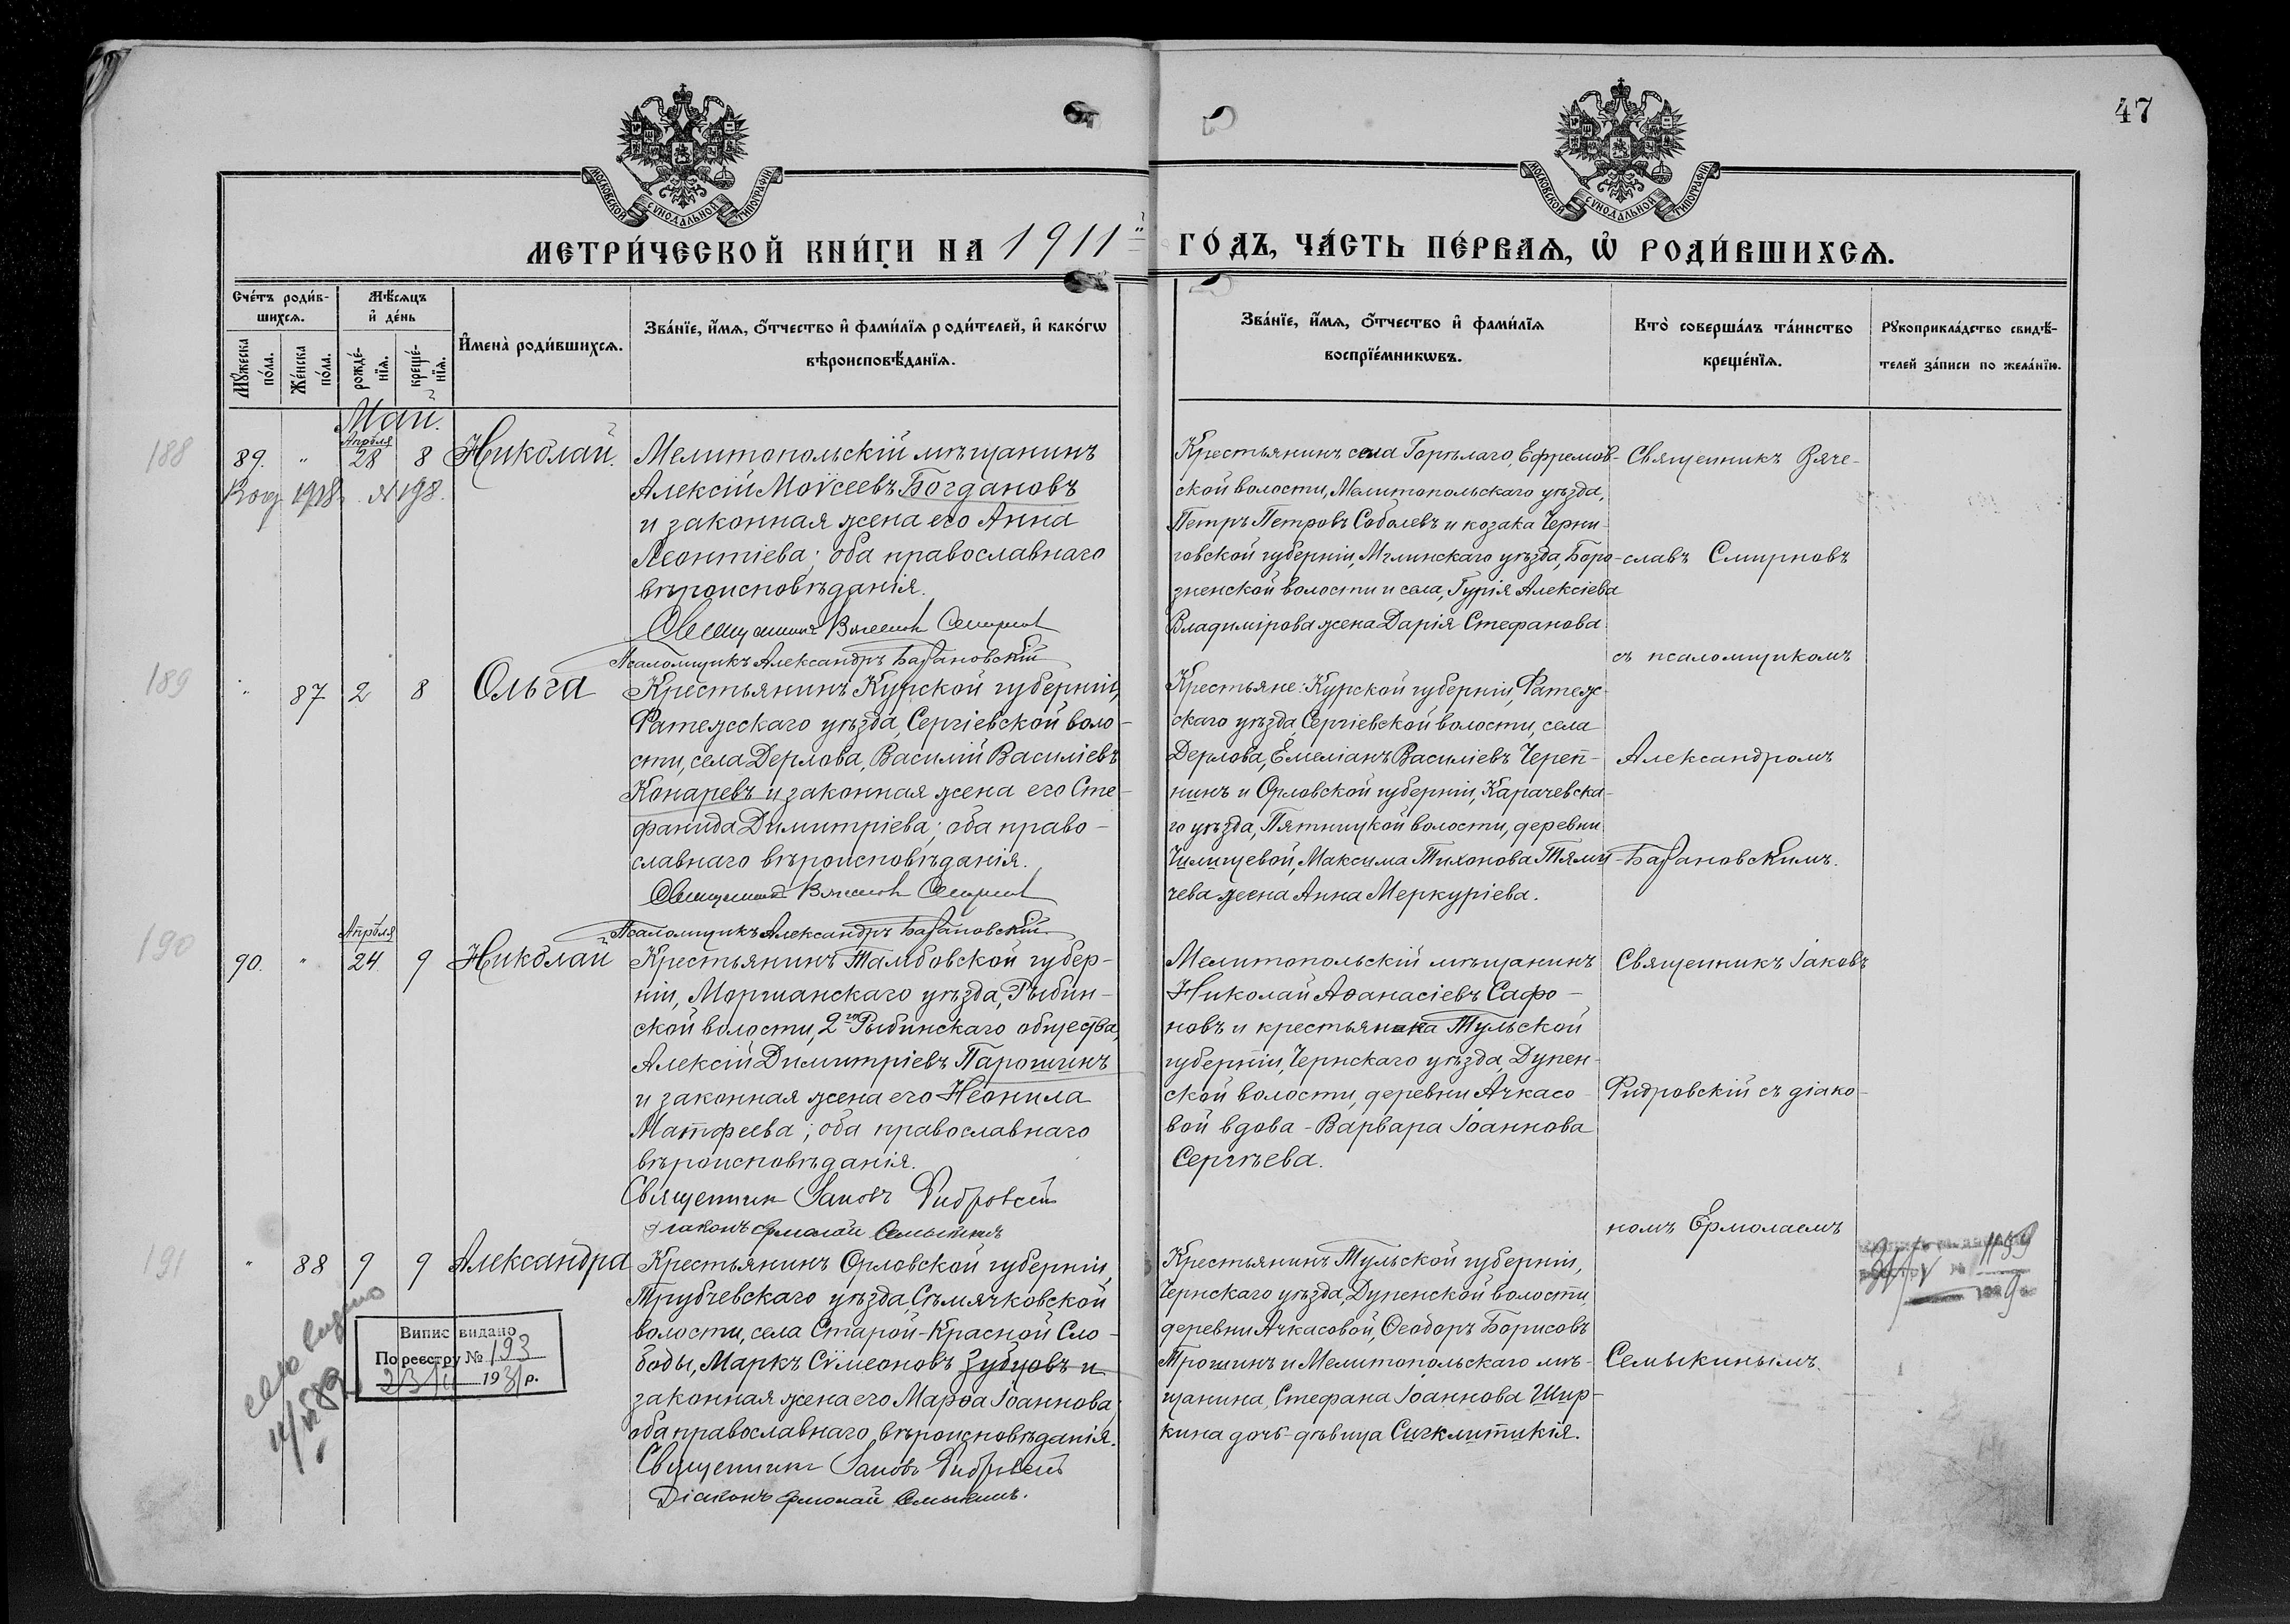 47
МОСКОВСКОЙ СУНОДАЛЬНОЙ ТИПОГРАФІИ
МОСКОВСКОЙ СУНОДАЛЬНОЙ ТИПОГРАФІИ
МЕТРИ́ЧЕСКОЙ КНИ́ГИ НА 1911й ГО́ДЪ, ЧА́СТЬ ПЕ́РВАѦ, Ѡ҆ РОДИ́ВШИХСѦ.
Сче́тъ роди́в-
шихсѧ.
Мꙋ́жеска по́ла.
Же́нска по́ла.
Мѣ́сѧцъ
и҆ де́нь
рожде́-
нїѧ.
креще́-
нїѧ.
И҆мена̀ роди́вшихсѧ.
Зва́нїе, и҆́мѧ, ѻ҆́тчество и҆ фами́лїѧ роди́телей, и҆ како́гѡ
вѣроисповѣ́данїѧ.
Зва́нїе, и҆́мѧ, ѻ҆́тчество и҆ фами́лїѧ
воспрїе́мникѡвъ.
Кто̀ соверша́лъ та́инство
креще́нїѧ.
Рꙋкоприкла́дство свидѣ́-
телей за́писи по жела́нїю.
Май.
Апрѣля
188
89. " 28 8 Николай.
1918 №198.
Мелитопольскій мѣщанинъ
Алексій Моѵсеевъ Богдановъ
и законная жена его Анна
Леонтіева; оба православнаго
вѣроисповѣданія.
Священникъ Вячеславъ Смирновъ
Псаломщикъ Александръ Базановскій
Крестьянинъ села Горѣлаго, Ефремов-
ской волости, Мелитопольскаго уѣзда,
Петръ Петровъ Соболевъ и козака Черни-
говской губерніи, Мглинскаго уѣзда, Боро-
зненской волости и села, Гурія Алексіева
Владимірова жена Дарія Стефанова
Священникъ Вяче-
славъ Смирновъ
съ псаломщикомъ
Александромъ
Базановскимъ.
189
" 87 2 8 Ольга
Крестьянинъ Курской губерніи,
Фатежскаго уѣзда, Сергіевской воло-
сти, села Дерлова, Василій Василіевъ
Конаревъ и законная жена его Сте-
фанида Димитріева; оба право-
славнаго вѣроисповѣданія.
Священникъ Вячеславъ Смирновъ
Псаломщикъ Александръ Базановскій
Крестьяне: Курской губерніи, Фатеж-
скаго уѣзда, Сергіевской волости, села
Дерлова, Емеліанъ Василіевъ Череп-
нинъ и Орловской губерніи, Карачевска-
го уѣзда, Пятницкой волости, деревни
Чилищевой, Максима Тихонова Тями-
чева жена Анна Меркуріева.
190
Апрѣля
90. " 24 9 Николай
Крестьянинъ Тамбовской губер-
ніи, Моршанскаго уѣзда, Рыбин-
ской волости, 2го Рыбинскаго общества,
Алексій Димитріевъ Парошинъ
и законная жена его Неонила
Матфеева; оба православнаго
вѣроисповѣданія.
Священникъ Іаковъ Фидровскій
Діаконъ Ермолай Семыкинъ
Мелитопольскій мѣщанинъ
Николай Аѳанасіевъ Сафо-
новъ и крестьянина Тульской
губерніи, Чернскаго уѣзда, Дупен-
ской волости, деревни Ачкасо-
вой вдова - Варвара Іоаннова
Сергѣева.
Священникъ Іаковъ
Фидровскій съ діако-
номъ Ермолаемъ
Семыкинымъ.
191
" 88 9 9 Александра
Крестьянинъ Орловской губерніи,
Трубчевскаго уѣзда, Сѣмячковской
волости, села Старой-Красной Сло-
боды, Маркъ Сѵмеоновъ Зубцовъ и
законная жена его Марѳа Іоаннова;
оба православнаго вѣроисповѣданія.
Священникъ Іаковъ Фидровскій
Діаконъ Ермолай Семыкинъ.
Крестьянинъ Тульской губерніи,
Чернскаго уѣзда, Дупенской волости,
деревни Ачкасовой, Ѳеодоръ Борисовъ
Трошинъ и Мелитопольскаго мѣ-
щанина, Стефана Іоаннова Шир-
кина дочь-дѣвица Сигклитикія.
Випис видано
По реєстру № 193
1931 р.
1159